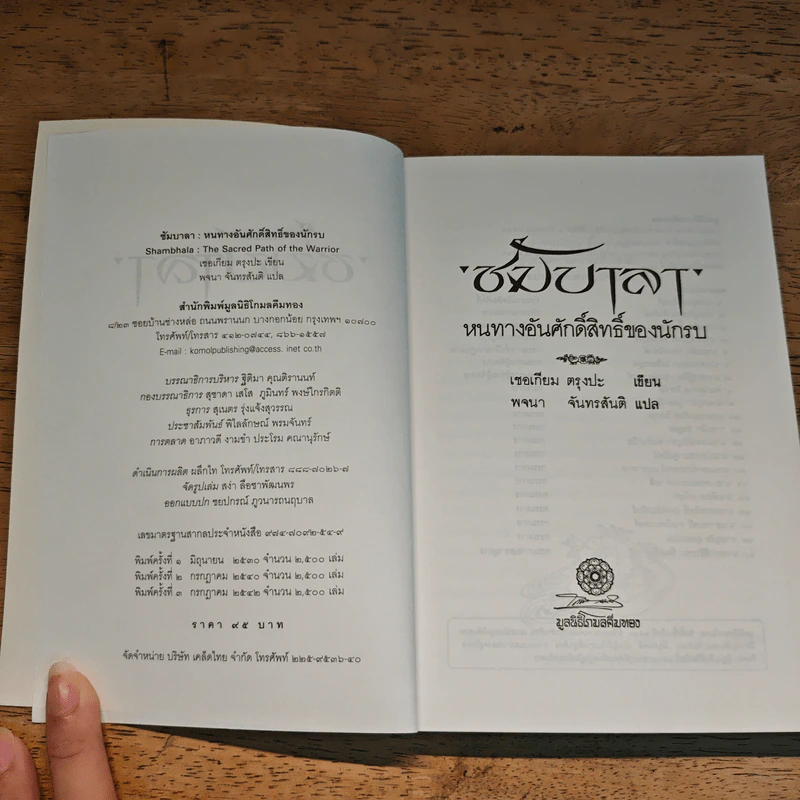 ชัมบาลา : หนทางอันศักดิ์สิทธิ์ของนักรบ
Shambhala : The Sacred Path of the Warrior
เชอเกียม ตรุงปะ เขียน
พจนา จันทรสันติ แปล
สำนักพิมพ์มูลนิธิโกมลคีมทอง
๘/๒๓ ซอยบ้านช่างหล่อ ถนนพรานนก บางกอกน้อย กรุงเทพฯ ๑๐๗๐๐
โทรศัพท์/โทรสาร ๔๑๒-๐๗๔๔, ๘๖๖-๑๕๕๗
E-mail : komolpublishing@access. inet co.th
บรรณาธิการบริหาร ฐิติมา คุณติรานนท์
กองบรรณาธิการ สุชาดา เสโส ภูมินทร์ พงษ์ไกรกิตติ
ธุรการ สุเนตร รุ่งแจ้งสุวรรณ
ประชาสัมพันธ์ พิไลลักษณ์ พรมจันทร์
การตลาด อาภาวดี งามขำ ประโรม คณานุรักษ์
ดำเนินการผลิต ผลึกไท โทรศัพท์/โทรสาร ๘๘๘-๗๐๒๖-๗
จัดรูปเล่ม สง่า ลือชาพัฒนพร
ออกแบบปก ชยปกรณ์ ภูวนารถนฤบาล
เลขมาตรฐานสากลประจำหนังสือ ๙๗๔-๗๐๙๒-๕๔-๙
พิมพ์ครั้งที่ ๑ มิถุนายน ๒๕๓๐ จำนวน ๒,๕๐๐ เล่ม
พิมพ์ครั้งที่ ๒ กรกฎาคม ๒๕๔๐ จำนวน ๒,๕๐๐ เล่ม
พิมพ์ครั้งที่ ๓ กรกฎาคม ๒๕๔๒ จำนวน ๒,๕๐๐ เล่ม
ราคา ๙๕ บาท
จัดจำหน่าย บริษัท เคล็ดไทย จำกัด โทรศัพท์ ๒๒๕-๙๕๓๖-๔๐
'ชัมบาลา'
หนทางอันศักดิ์สิทธิ์ของนักรบ
เชอเกียม ตรุงปะ เขียน
พจนา จันทรสันติ แปล
มูลนิธิโกมลคีมทอง